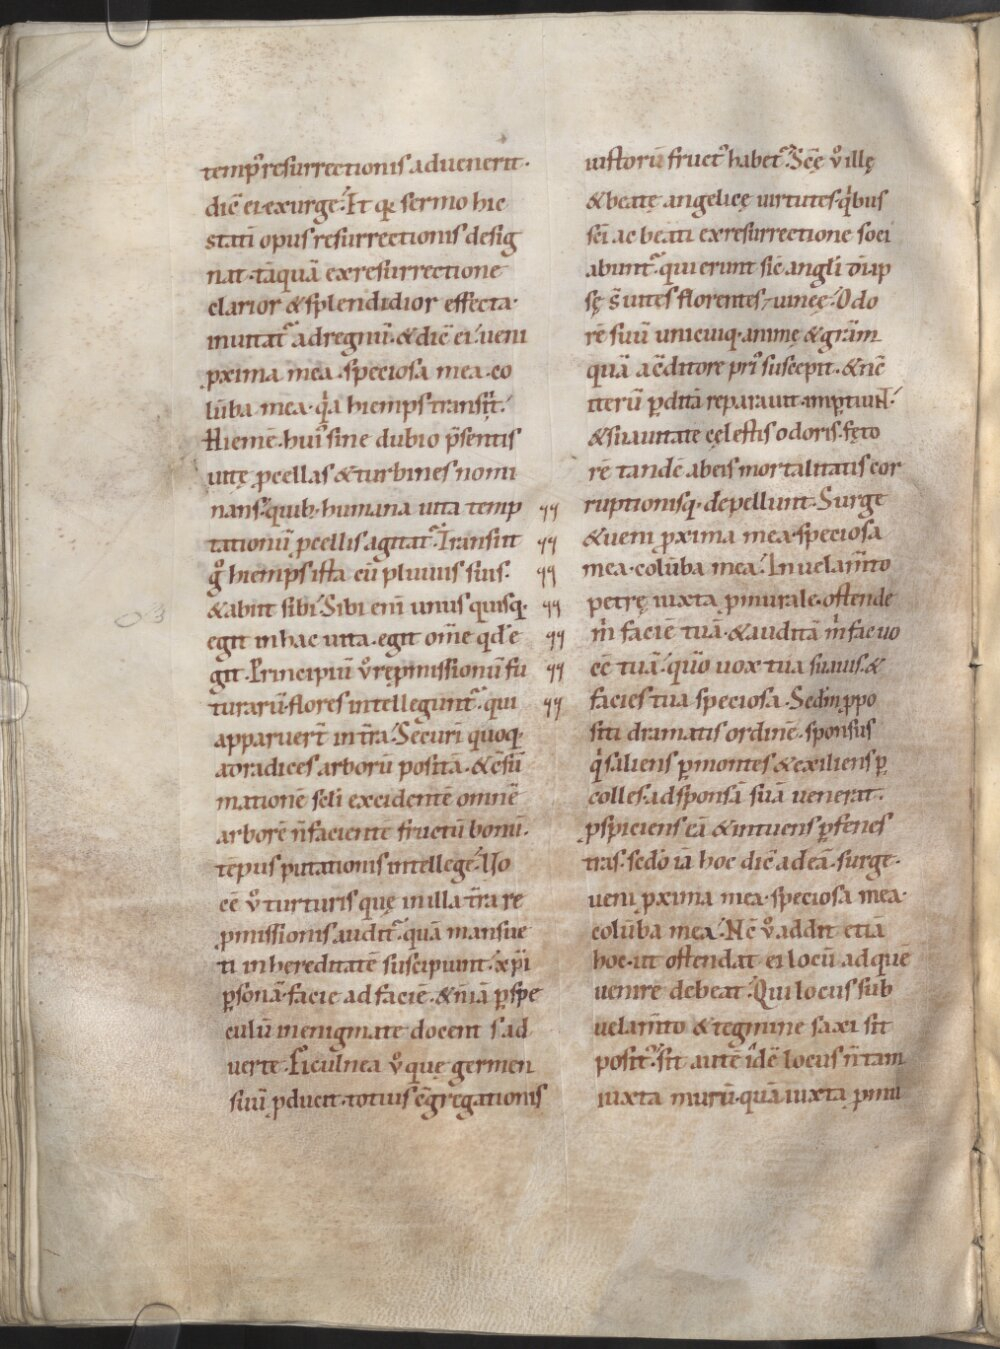 temp᾽ resurrectionis aduenerit·
diē ei·exurge. Et qꝛ sermo hic
statī opus resurrectionis desig
nat·tāquā ex resurrectione
clarior & splendidior effecta·
inuitat᷑ ad regnū·& diē ei. ueni
ꝓxima mea·speciosa mea·co
lūba mea·qͥa hiemps transiit.
Hiemē·hui᾽ sine dubio p̄sentis
uitę ꝓcellas & turbines nomi
nans. quib;·humana uita temp
tationū ꝓcellis agitat᷑. Transiit
gͦ hiemps ista cū pluuiis suis·
& abiit sibi. Sibi enī unus quisq;·
egit in hac uita·egit om̄e qd̄ e
git. Principiū ūo repmissionū fu
turarū·flores intellegunt᷑. qui
apparuer̄t in tr̄a. Securī quoq;·
ad radices arborū positā·& c̄sū
mationē scl̄i excidentē omnē
arborē n̄ facientē fructū bonū·
tēpus putationis intellege. Uo
cē ūo turturis quę in illa tr̄a re
ꝓmissionis audit᷑·quā mansue
ti in hereditatē suscipiunt. xp̄i
ꝑsonā·facie ad faciē·& n̄ iā ꝑ spe
culū in enigmate docent s ad
uerte·Ficulnea ūo que germen
suū ꝓducit·totius c̄gregationis
iustorū fruct᾽ habet᷑. Sc̄ę ūo illę
& beatę angelicę uirtutes·qͥbus
sc̄i ac beati ex resurrectione soci
abunt᷑·qui erunt sic angl̄i dī·ip
sę s̄ uites florentes·& uineę. Odo
rē suū unicuiq;·animę & gr̄am
quā a c̄ditore pri᾽ suscepit·& nc̄
iterū ꝑditā reparauit·imꝑtiunt.
& suauitate cęlestis odoris·fęto
rē tandē ab eis mortalitatis cor
ruptionisq;·depellunt·Surge
& ueni ꝓxima mea·speciosa
mea·colūba mea. In uelam̄to
petrę iuxta ꝓmurale·ostende
m̄ faciē tuā·& auditā m̄ fac uo
cē tuā. quō uox tua suauis·&
facies tua speciosa·Sedm̄ ꝓpo
siti dramatis ordinē·sponsus
qͥ saliens ꝑ montes & exiliens ꝑ
colles·ad sponsā suā uenerat·
ꝓspiciens eā & intuens ꝑ fenes
tras·sedō iā hoc dic̄ ad eā·surge·
ueni ꝓxima mea·speciosa mea·
colūba mea. Nc̄ ūo addit etiā
hoc·ut ostendat ei locū ad quē
uenire debeat. Qui locus sub
uelam̄to & tegmine saxi sit
posit᾽·sit autē idē locus n̄ tam
iuxta murū·quā iuxta ꝓmu